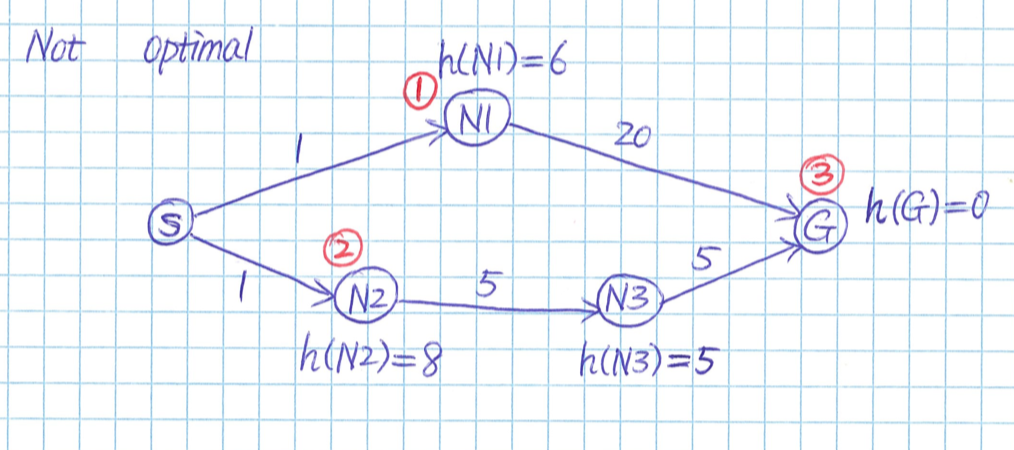 Not optimal
h(N1)=6
①
N1
1
20
③
S
G
h(G)=0
②
1
N2
5
N3
5
h(N2)=8
h(N3)=5